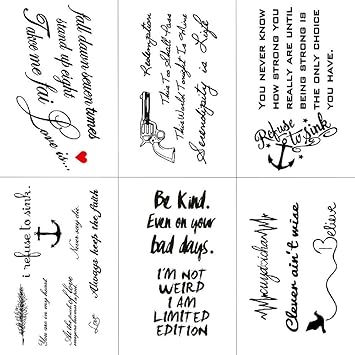 fall down seven times
stand up eight
Take me
Love is...
Redemption
This Too Shall Pass
This Whole Tought Is Mine
Serendipity is High
YOU NEVER KNOW
HOW STRONG YOU
REALLY ARE UNTIL
BEING STRONG IS
THE ONLY CHOICE
YOU HAVE.
Refuse
to sink
i refuse to sink.
Never say die.
Always keep the faith
You are in my heart
At the end of
Lost
Be Kind.
Even on your
bad days.
I'M NOT
WEIRD
I AM
LIMITED
EDITION
Clever ain't wise
Believe